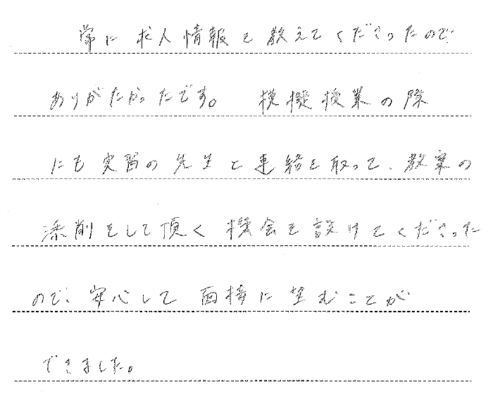 常に求人情報を教えてくださったので
ありがたかったです。 模擬授業の際
にも実習の先生と連絡を取って、教案の
添削をして頂く機会を設けてくださった
ので、安心して面接に望むことが
できました。